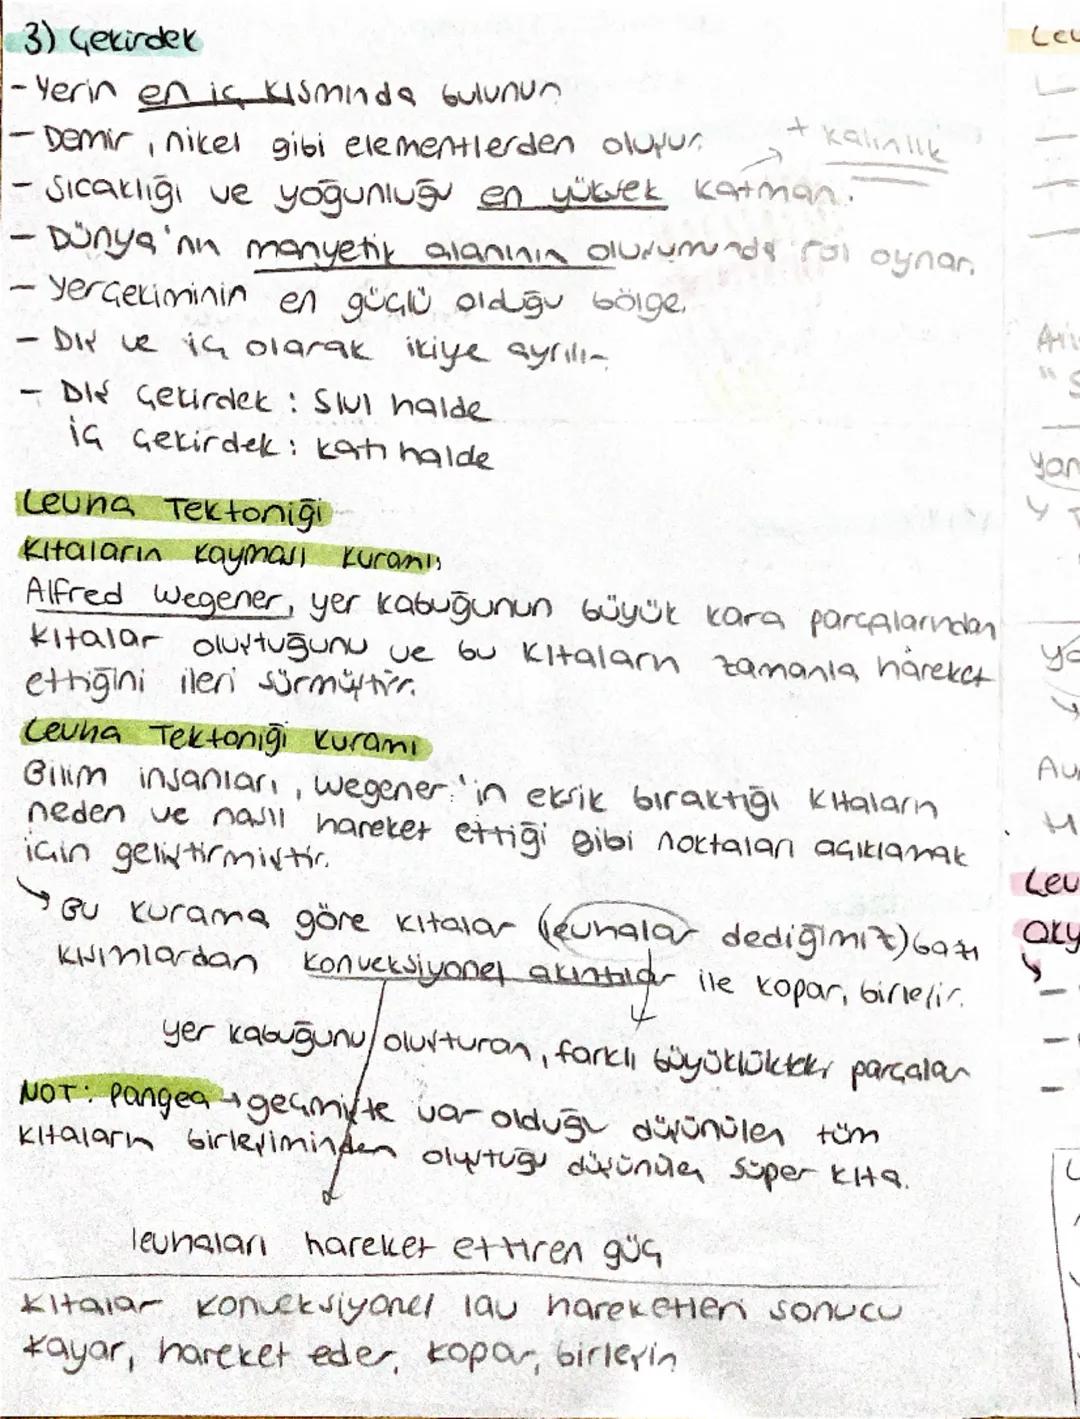 3) Çekirdek
- Yerin en iç kısmında bulunur
- Demir, nikel gibi elementlerden oluşur.
+ kalınlık
- Sıcaklığı ve yoğunluğu en yüksek katman.
- Dünya'nın manyetik alanının oluşumunda rol oynar.
- Yerçekiminin en güçlü olduğu bölge.
- Dış ve iç olarak ikiye ayrılır
- Dış Çekirdek : Sıvı halde
iç çekirdek : katı halde
Levha Tektoniği
Kıtaların Kayması Kuramı;
Alfred Wegener, yer kabuğunun büyük kara parçalarından
kıtalar oluştuğunu ve bu kıtaların zamanla hareket
ettiğini ileri sürmüştür.
Levha Tektoniği Kuramı
Bilim insanları, Wegener'in eksik bıraktığı kıtaların
neden ve nasıl hareket ettiği gibi noktaları açıklamak
için geliştirmiştir.
Bu kurama göre kıtalar (levhalar dediğimiz) bazı
kısımlardan konveksiyonel akıntılar ile kopar, birleşir.
yer kabuğunu oluşturan, farklı büyüklükteki parçalar
NOT: Pangea → geçmişte var olduğu düşünülen tüm
kıtaların birleşiminden oluştuğu düşünülen süper kıta.
levhaları hareket ettiren güç
Kıtalar konveksiyonel lav hareketleri sonucu
kayar, hareket eder, kopar, birleşir
Lev
Yan
Lev
aky